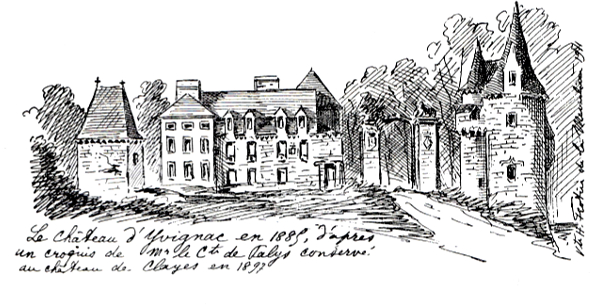 Le château d'Yvignac en 1885, d'après
un croquis de Mr le Cte de Palys conservé
au château de Clayes en 1897
Vte H. Frotier de la Messelière